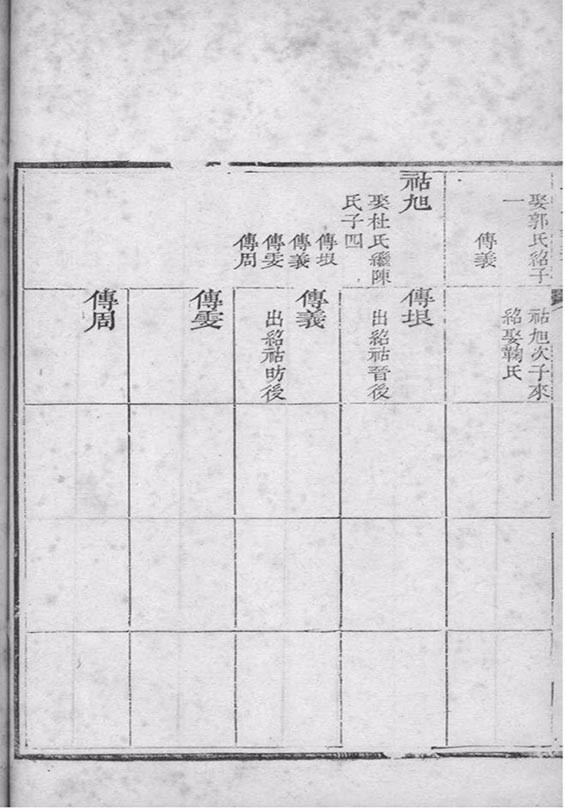 娶郭氏紹子
一
傳義
祜旭次子來
紹娶鞠氏
祜旭
娶杜氏繼陳
氏子四
傳垠
傳義
傳雯
傳周
傳垠
出紹祜晉後
傳義
出紹祜昉後
傳雯
傳周